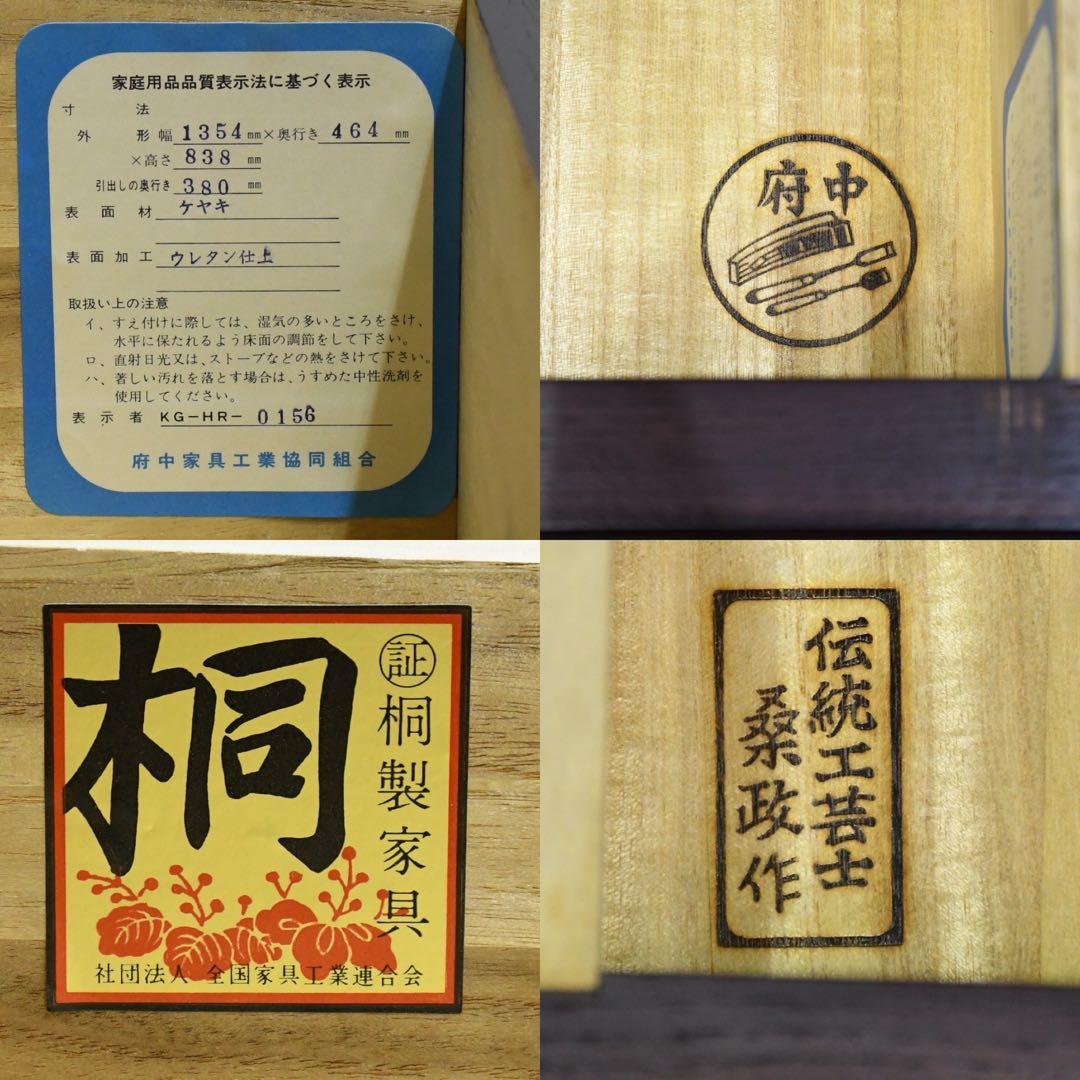 家庭用品品質表示法に基づく表示
寸 法
外 形 幅 1354 mm × 奥行き 464 mm
× 高さ 838 mm
引出しの奥行き 380 mm
表 面 材 ケヤキ
表 面 加 工 ウレタン仕上
取扱い上の注意
イ、すえ付けに際しては、湿気の多いところをさけ、
水平に保たれるよう床面の調節をして下さい。
ロ、直射日光又は、ストーブなどの熱をさけて下さい。
ハ、著しい汚れを落とす場合は、うすめた中性洗剤を
使用してください。
表 示 者 KG-HR- 0156
府中家具工業協同組合
府中
桐
証
桐製家具
社団法人 全国家具工業連合会
伝統工芸士
桑政作